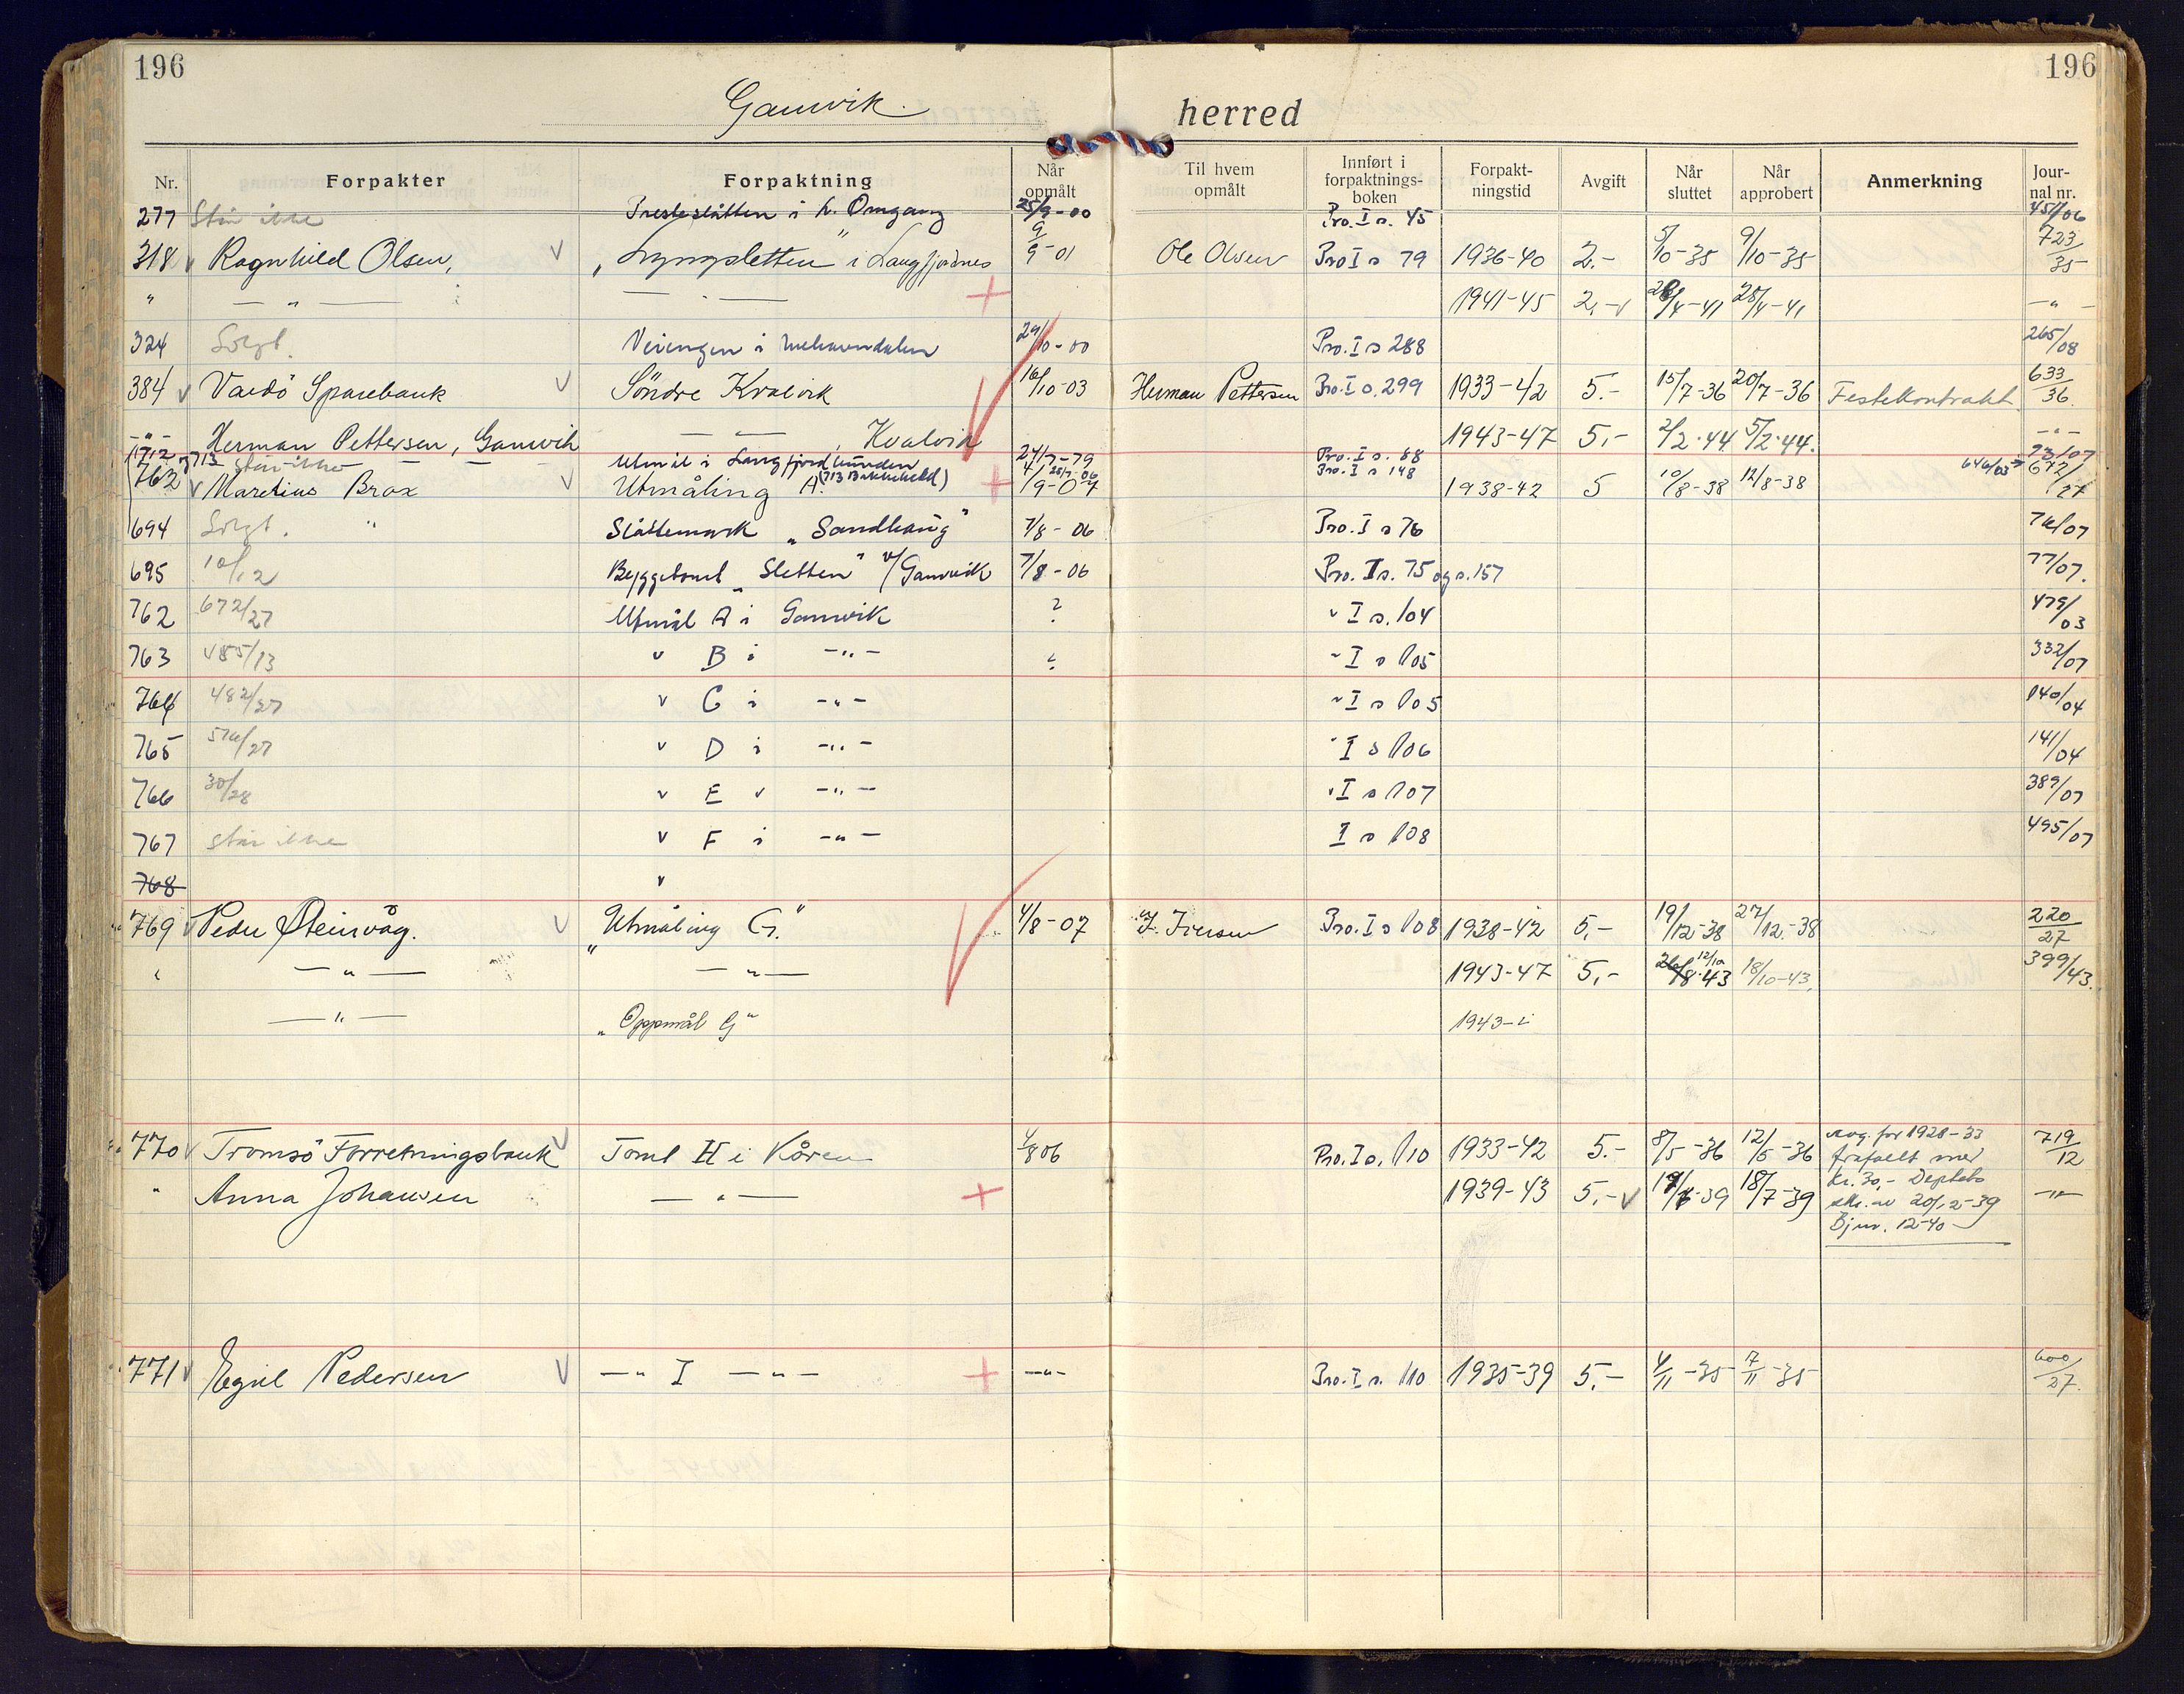 196 196
Gamvik herred
Nr. Forpakter Forpaktning Når opmålt Til hvem opmålt Innført i forpaktnings-boken Forpakt-ningstid Avgift Når sluttet Når approbert Anmerkning Jour-nal nr.
277 Står ikke Presteslåtten i L. Omgang 25/9-00 Pro. I s. 45 45/06
318 v Ragnhild Olsen, v „Lyngsletten" i Langfjordnes 9/9-01 Ole Olsen Pro I s 79 1936-40 2.- 5/10-35 9/10-35 723/35
" — " — — " — + 1941-45 2,- v 28/4-41 — " —
324 Solgt. i 29/10-00 Pro. I s 288 265/08
384 v Vardö Sparebank v Söndre Kvalvik 16/10-03 Herman Pettersen Pro. I s. 299 1933-42 5.- 15/7-36 20/7-36 Festekontrakt. 633/36
- " - Herman Pettersen, Gamvik — — , Kvalvik 1943-47 5,- 2/2.44 5/2.44. - " -
712 713 står ikke Utmål i Langfjordbunden 24/7-79 Pro. I s. 88 93/07
762 v Brox v Utmåling A. + Pro. I s 148 1938-42 5 10/8-38 12/8-38 672/27
694 Solgt. " Slåttemark „Sandhaug" 7/8-06 Pro. I s 76 76/07
695 10/12 Byggetomt „Sletten" v/Gamvik 7/8-06 Pro. I s. 75 og s. 157 77/07.
762 672/27 Utmål A i Gamvik ? " I s. 104 479/03
763 485/13 " B i - " - ? " I s 105 332/07
764 482/27 " C i - " - " I s 105 140/04
765 516/27 " D i - " - " I s 106 141/04
766 30/28 " E " - " - " I s 107 389/07
767 står ikke " F i - " - I s 108 495/07
768 "
769 v Peder Steinvåg. v „Utmåling G." 4/8-07 J. Iversen Pro. I s 108 1938-42 5,- 19/12-38 27/12-38 220/27
" — " — — " — 1943-47 5,- 26/8-43 12/10 18/10-43. 399/43.
— " — „Oppmål G" 1943-
770 v Tromsö Forretningsbank v Tomt H i Kåren 4/8 06 Pro. I s. 110 1933-42 5.- 8/5-36 12/5-36 Avg. for 1928-33 719/12
frafaelt med
" Anna Johansen — " — + 1939-43 5,- v 18/7-39 Kr. 30,- Deptets — " —
skr. av 20/12-39
Bjnr. 12-40
771 v Egil Pedersen v — " I — " — + — " — Pro. I s. 110 1935-39 5.- 4/11-35 7/11-35 600/27.